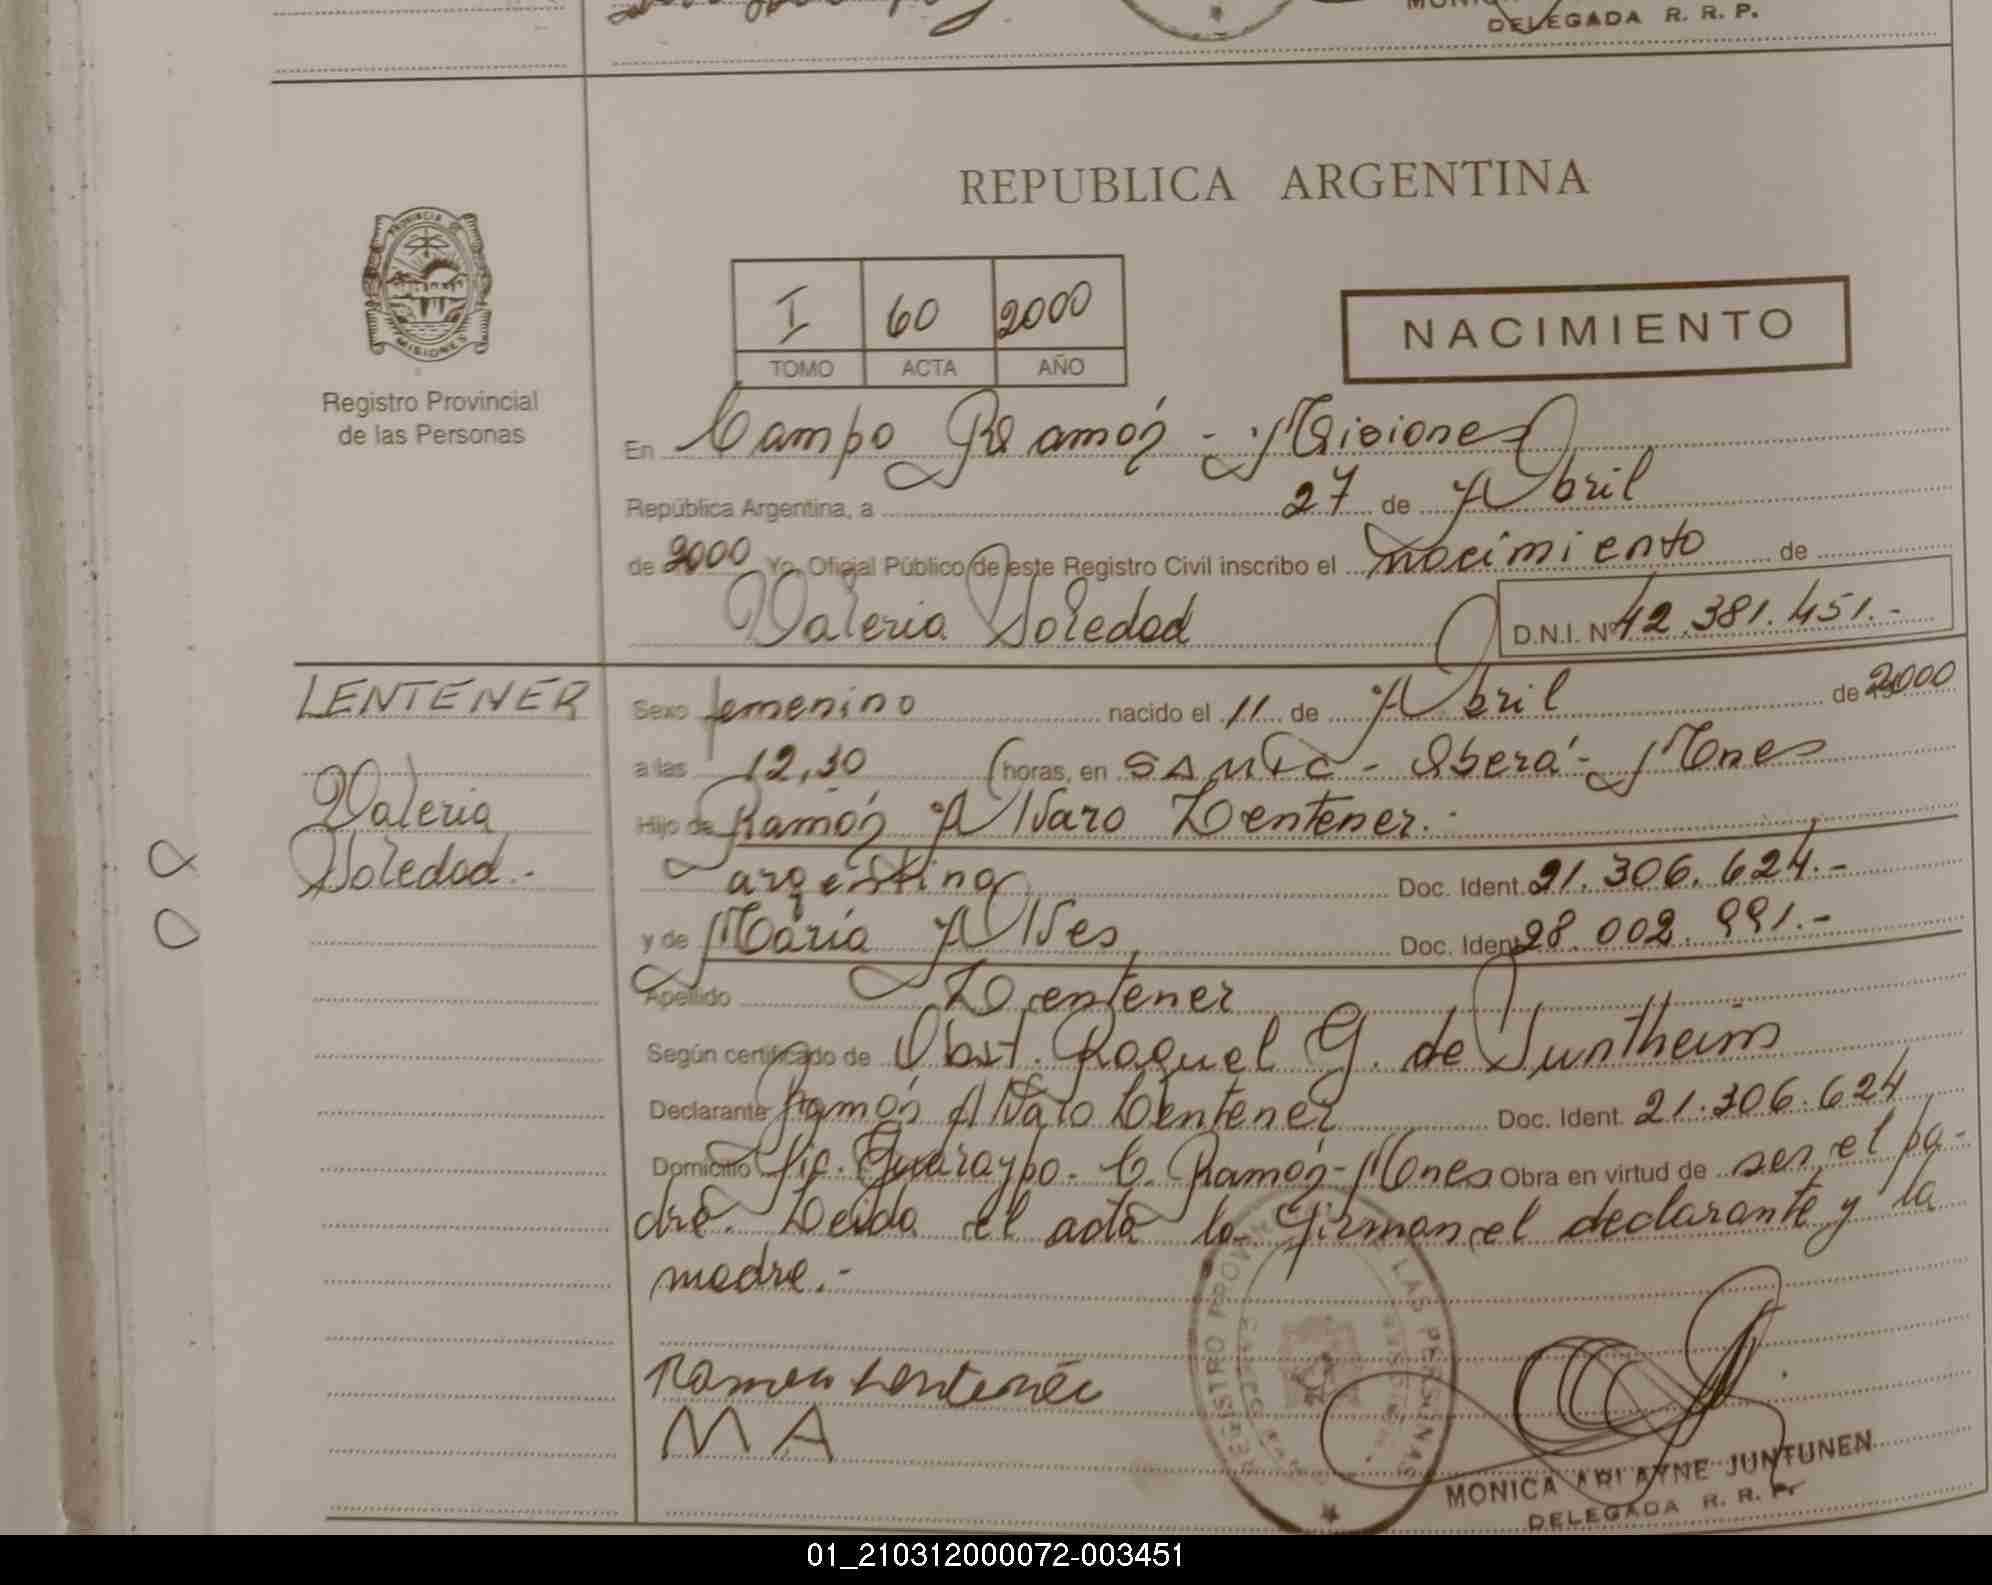 DELEGADA R. R. P.
REPUBLICA ARGENTINA
PROVINCIA DE
MISIONES
Registro Provincial
de las Personas
I 60 2000
TOMO ACTA AÑO
NACIMIENTO
En Campo Ramón - Misiones
República Argentina, a 27 de Abril
de 2000 Yo, Oficial Público de este Registro Civil inscribo el nacimiento de
Valeria Soledad D.N.I. Nº 42.381.451.-
LENTENER
Valeria
Soledad.-
Sexo femenino nacido el 11 de Abril de 2000
a las 12,30 horas, en - Oberá - Mnes
Hijo de Ramón Alvaro Lentener.-
argentino Doc. Ident. 21.306.624.-
y de María Alves Doc. Ident. 28.002.991.-
Apellido Lentener
Según certificado de Obst. Raquel G. de Suntheim
Declarante Ramón Alvaro Lentener Doc. Ident. 21.306.624
Domicilio Pic. Guaraypo - C. Ramón - Mnes Obra en virtud de ser el pa-
dre. Leida el acta la firman el declarante y la
madre.-
Ramon Lentener
M A
REGISTRO PROVINCIAL DE LAS PERSONAS
MONICA ARIAYNE JUNTUNEN
DELEGADA R. R. P.
01_210312000072-003451